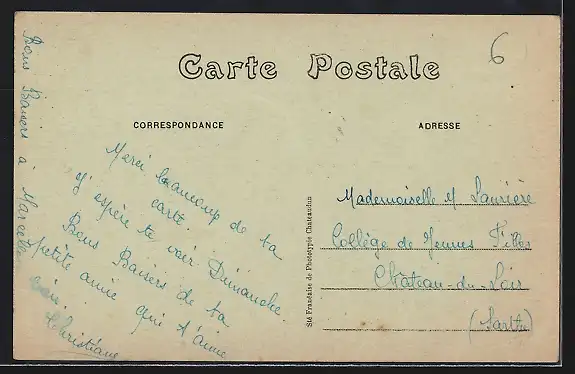 6
Carte Postale
CORRESPONDANCE
ADRESSE
Merci beaucoup de ta
carte.
J'espère te voir Dimanche.
Bons Baisers de ta
petite amie qui t'aime
Christiane
Bons Baisers à Marcelle
Mademoiselle M Laurière
Collège de Jeunes Filles
Château-du-Loir
(Sarthe)
Sté Française de Phototypie Chateaudun